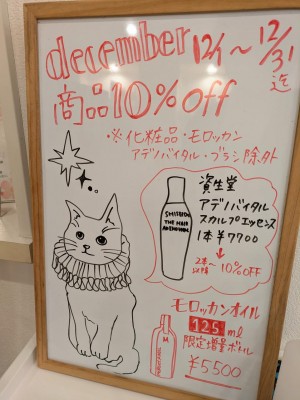 december 12/1〜12/31迄
商品10%off
※化粧品・モロッカン
アデノバイタル・ブラシ除外
資生堂
アデノバイタル
スカルプエッセンス
1本¥7700
↓
2本〜以降 10%OFF
SHISEIDO
THE HAIR
ADENOVITAL
モロッカンオイル
125ml
限定増量ボトル
¥5500
M